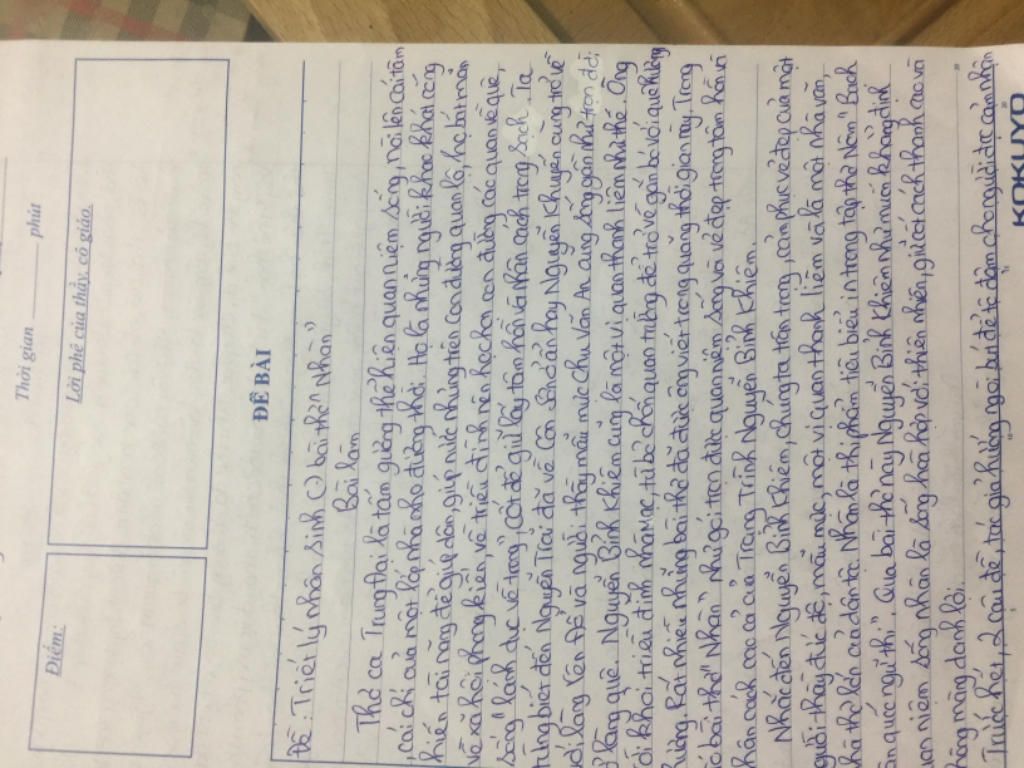 Thời gian ________ phút
Điểm:
Lời phê của thầy, cô giáo.
ĐỀ BÀI
Đề: Triết lý nhân sinh () bài thơ "Nhàn"
Bài làm
Thơ ca Trung Đại là tấm gương thể hiện quan niệm sống, nói lên cái tâm
, cái chí của một lớp nhà nho đương thời. Họ là những người khao khát cống
hiến tài năng để giúp dân, giúp nước nhưng trên con đường quan lộ, họ bất mãn
với xã hội phong kiến, về triều đình nên họ chọn con đường cáo quan về quê,
sống "lánh đục về trong", cốt để giữ lấy tâm hồn và nhân cách trong sạch. Ta
từng biết đến Nguyễn Trãi đã về Côn Sơn ở ẩn hay Nguyễn Khuyến cũng trở về
với làng Yên Đổ và người thầy mẫu mực Chu Văn An cũng sống gần như trọn đời
ở làng quê. Nguyễn Bỉnh Khiêm cũng là một vị quan thanh liêm như thế. Ông
rời khỏi triều đình nhằm mạc, từ bỏ chốn quan trường để trở về gắn bó với quê hương
mình. Rất nhiều những bài thơ đã được ông viết trong quãng thời gian này. Trong
đó bài thơ "Nhàn" như gói trọn được quan niệm sống và vẻ đẹp trong tâm hồn và
nhân cách cao cả của Trạng Trình Nguyễn Bỉnh Khiêm.
Nhắc đến Nguyễn Bỉnh Khiêm, chúng ta trân trọng, cảm phục vẻ đẹp của một
người thầy đức độ, mẫu mực, một vị quan thanh liêm và là một nhà văn,
nhà thơ lớn của dân tộc. Nhàn là thi phẩm tiêu biểu in trong tập thơ Nôm "Bạch
Vân quốc ngữ thi". Qua bài thơ này Nguyễn Bỉnh Khiêm như muốn khẳng định
quan niệm sống nhàn là sống hòa hợp với thiên nhiên, giữ cốt cách thanh cao và
không màng danh lợi.
Trước hết, 2 câu đề, tác giả hướng ngòi bút để tô đậm cho người đọc cảm nhận
KOKUYO